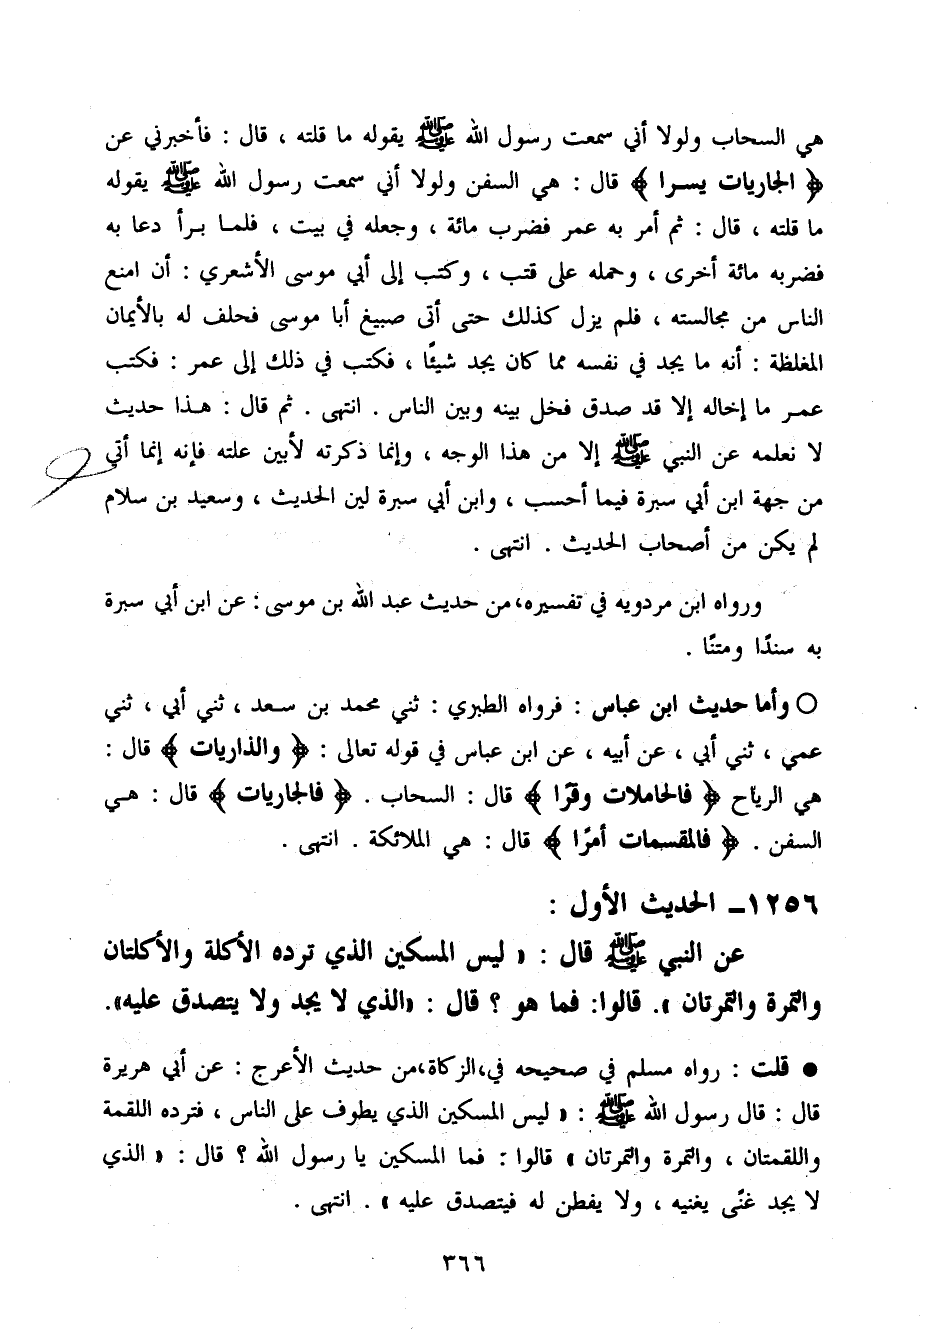 هي السحاب ولولا أني سمعت رسول الله ﷺ يقوله ما قلته ، قال : فأخبرني عن
﴿ الجاريات يسرا ﴾ قال : هي السفن ولولا أني سمعت رسول الله ﷺ يقوله
ما قلته ، قال : ثم أمر به عمر فضرب مائة ، وجعله في بيت ، فلما برأ دعا به
فضربه مائة أخرى ، وحمله على قتب ، وكتب إلى أبي موسى الأشعري : أن امنع
الناس من مجالسته ، فلم يزل كذلك حتى أتى صبيغ أبا موسى فحلف له بالأيمان
المغلظة : أنه ما يجد في نفسه مما كان يجد شيئًا ، فكتب في ذلك إلى عمر : فكتب
عمر ما إخاله إلا قد صدق فخل بينه وبين الناس . انتهى . ثم قال : هذا حديث
لا نعلمه عن النبي ﷺ إلا من هذا الوجه ، وإنما ذكرته لأبين علته فإنه إنما أتي
من جهة ابن أبي سبرة فيما أحسب ، وابن أبي سبرة لين الحديث ، وسعيد بن سلام
لم يكن من أصحاب الحديث . انتهى .
ورواه ابن مردويه في تفسيره،من حديث عبد الله بن موسى: عن ابن أبي سبرة
به سندًا ومتنًا .
○ وأما حديث ابن عباس : فرواه الطبري : ثني محمد بن سعد ، ثني أبي ، ثني
عمي ، ثني أبي ، عن أبيه ، عن ابن عباس في قوله تعالى : ﴿ والذاريات ﴾ قال :
هي الرياح ﴿ فالحاملات وقرًا ﴾ قال : السحاب . ﴿ فالجاريات ﴾ قال : هي
السفن . ﴿ فالمقسمات أمرًا ﴾ قال : هي الملائكة . انتهى .
١٢٥٦- الحديث الأول :
عن النبي ﷺ قال : « ليس المسكين الذي ترده الأكلة والأكلتان
والتمرة والتمرتان ». قالوا: فما هو ؟ قال : «الذي لا يجد ولا يتصدق عليه».
● قلت : رواه مسلم في صحيحه في،الزكاة،من حديث الأعرج : عن أبي هريرة
قال : قال رسول الله ﷺ : « ليس المسكين الذي يطوف على الناس ، فترده اللقمة
واللقمتان ، والتمرة والتمرتان » قالوا : فما المسكين يا رسول الله ؟ قال : « الذي
لا يجد غنًى يغنيه ، ولا يفطن له فيتصدق عليه » . انتهى .
٣٦٦